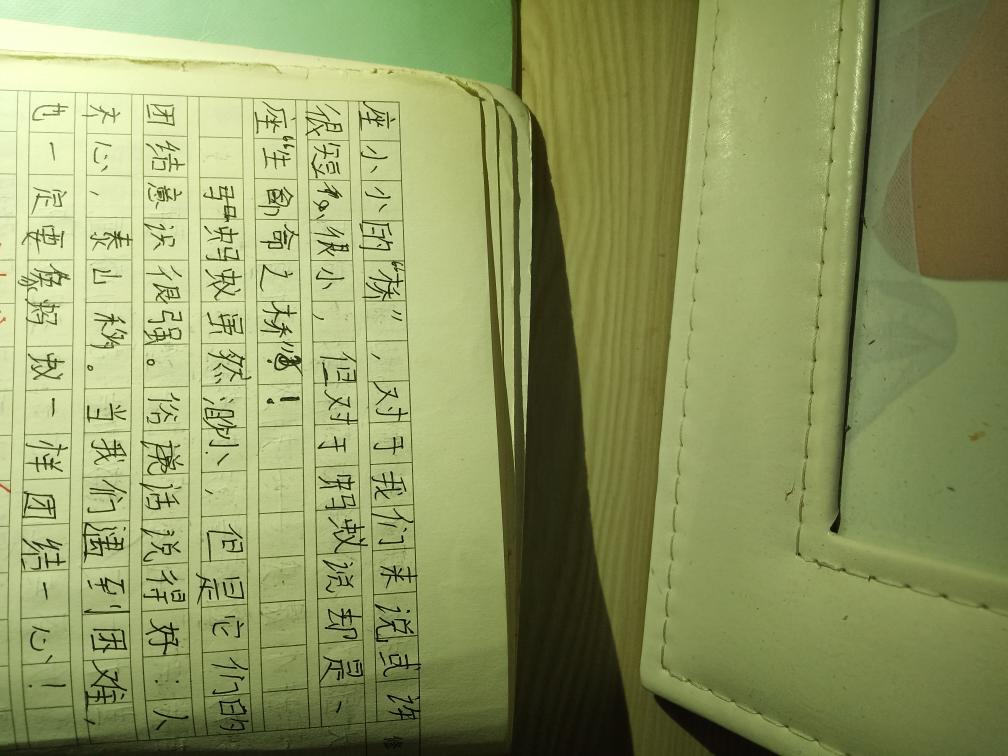 座小小的“桥”，对于我们来说或许
很短很小，但对于蚂蚁说却是、
座“生命之桥”！
蚂蚁虽然渺小，但是它们的
团结意识很强。俗话说得好：人
齐心，泰山移。当我们遇到困难，
也一定要像蚂蚁一样团结一心！